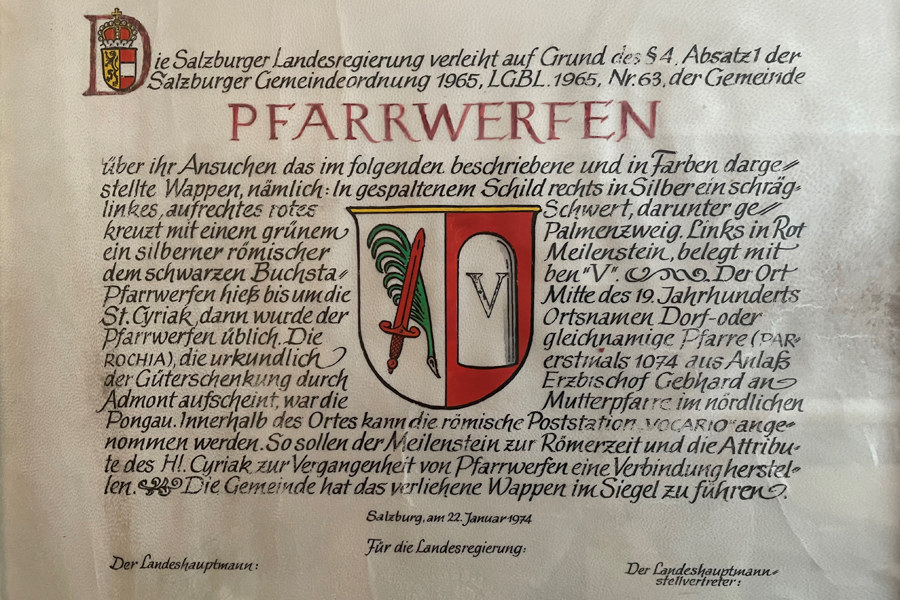 Die Salzburger Landesregierung verleiht auf Grund des § 4, Absatz 1 der
Salzburger Gemeindeordnung 1965, LGBL. 1965, Nr. 63, der Gemeinde
PFARRWERFEN
über ihr Ansuchen das im folgenden beschriebene und in Farben darge=
stellte Wappen, nämlich: In gespaltenem Schild rechts in Silber ein schräg=
linkes, aufrechtes rotes Schwert, darunter ge=
kreuzt mit einem grünem Palmenzweig. Links in Rot
ein silberner römischer Meilenstein, belegt mit
dem schwarzen Buchsta= ben "V". Der Ort
Pfarrwerfen hieß bis um die Mitte des 19. Jahrhunderts
St. Cyriak, dann wurde der Ortsnamen Dorf- oder
Pfarrwerfen üblich. Die gleichnamige Pfarre (PAR=
ROCHIA), die urkundlich erstmals 1074 aus Anlaß
der Güterschenkung durch Erzbischof Gebhard an
Admont aufscheint, war die Mutterpfarre im nördlichen
Pongau. Innerhalb des Ortes kann die römische Poststation „VOCARIO" ange=
nommen werden. So sollen der Meilenstein zur Römerzeit und die Attribu=
te des Hl. Cyriak zur Vergangenheit von Pfarrwerfen eine Verbindung herstel=
len. Die Gemeinde hat das verliehene Wappen im Siegel zu führen.
V
Salzburg, am 22. Januar 1974
Für die Landesregierung:
Der Landeshauptmann:
Der Landeshauptmann=
stellvertreter: